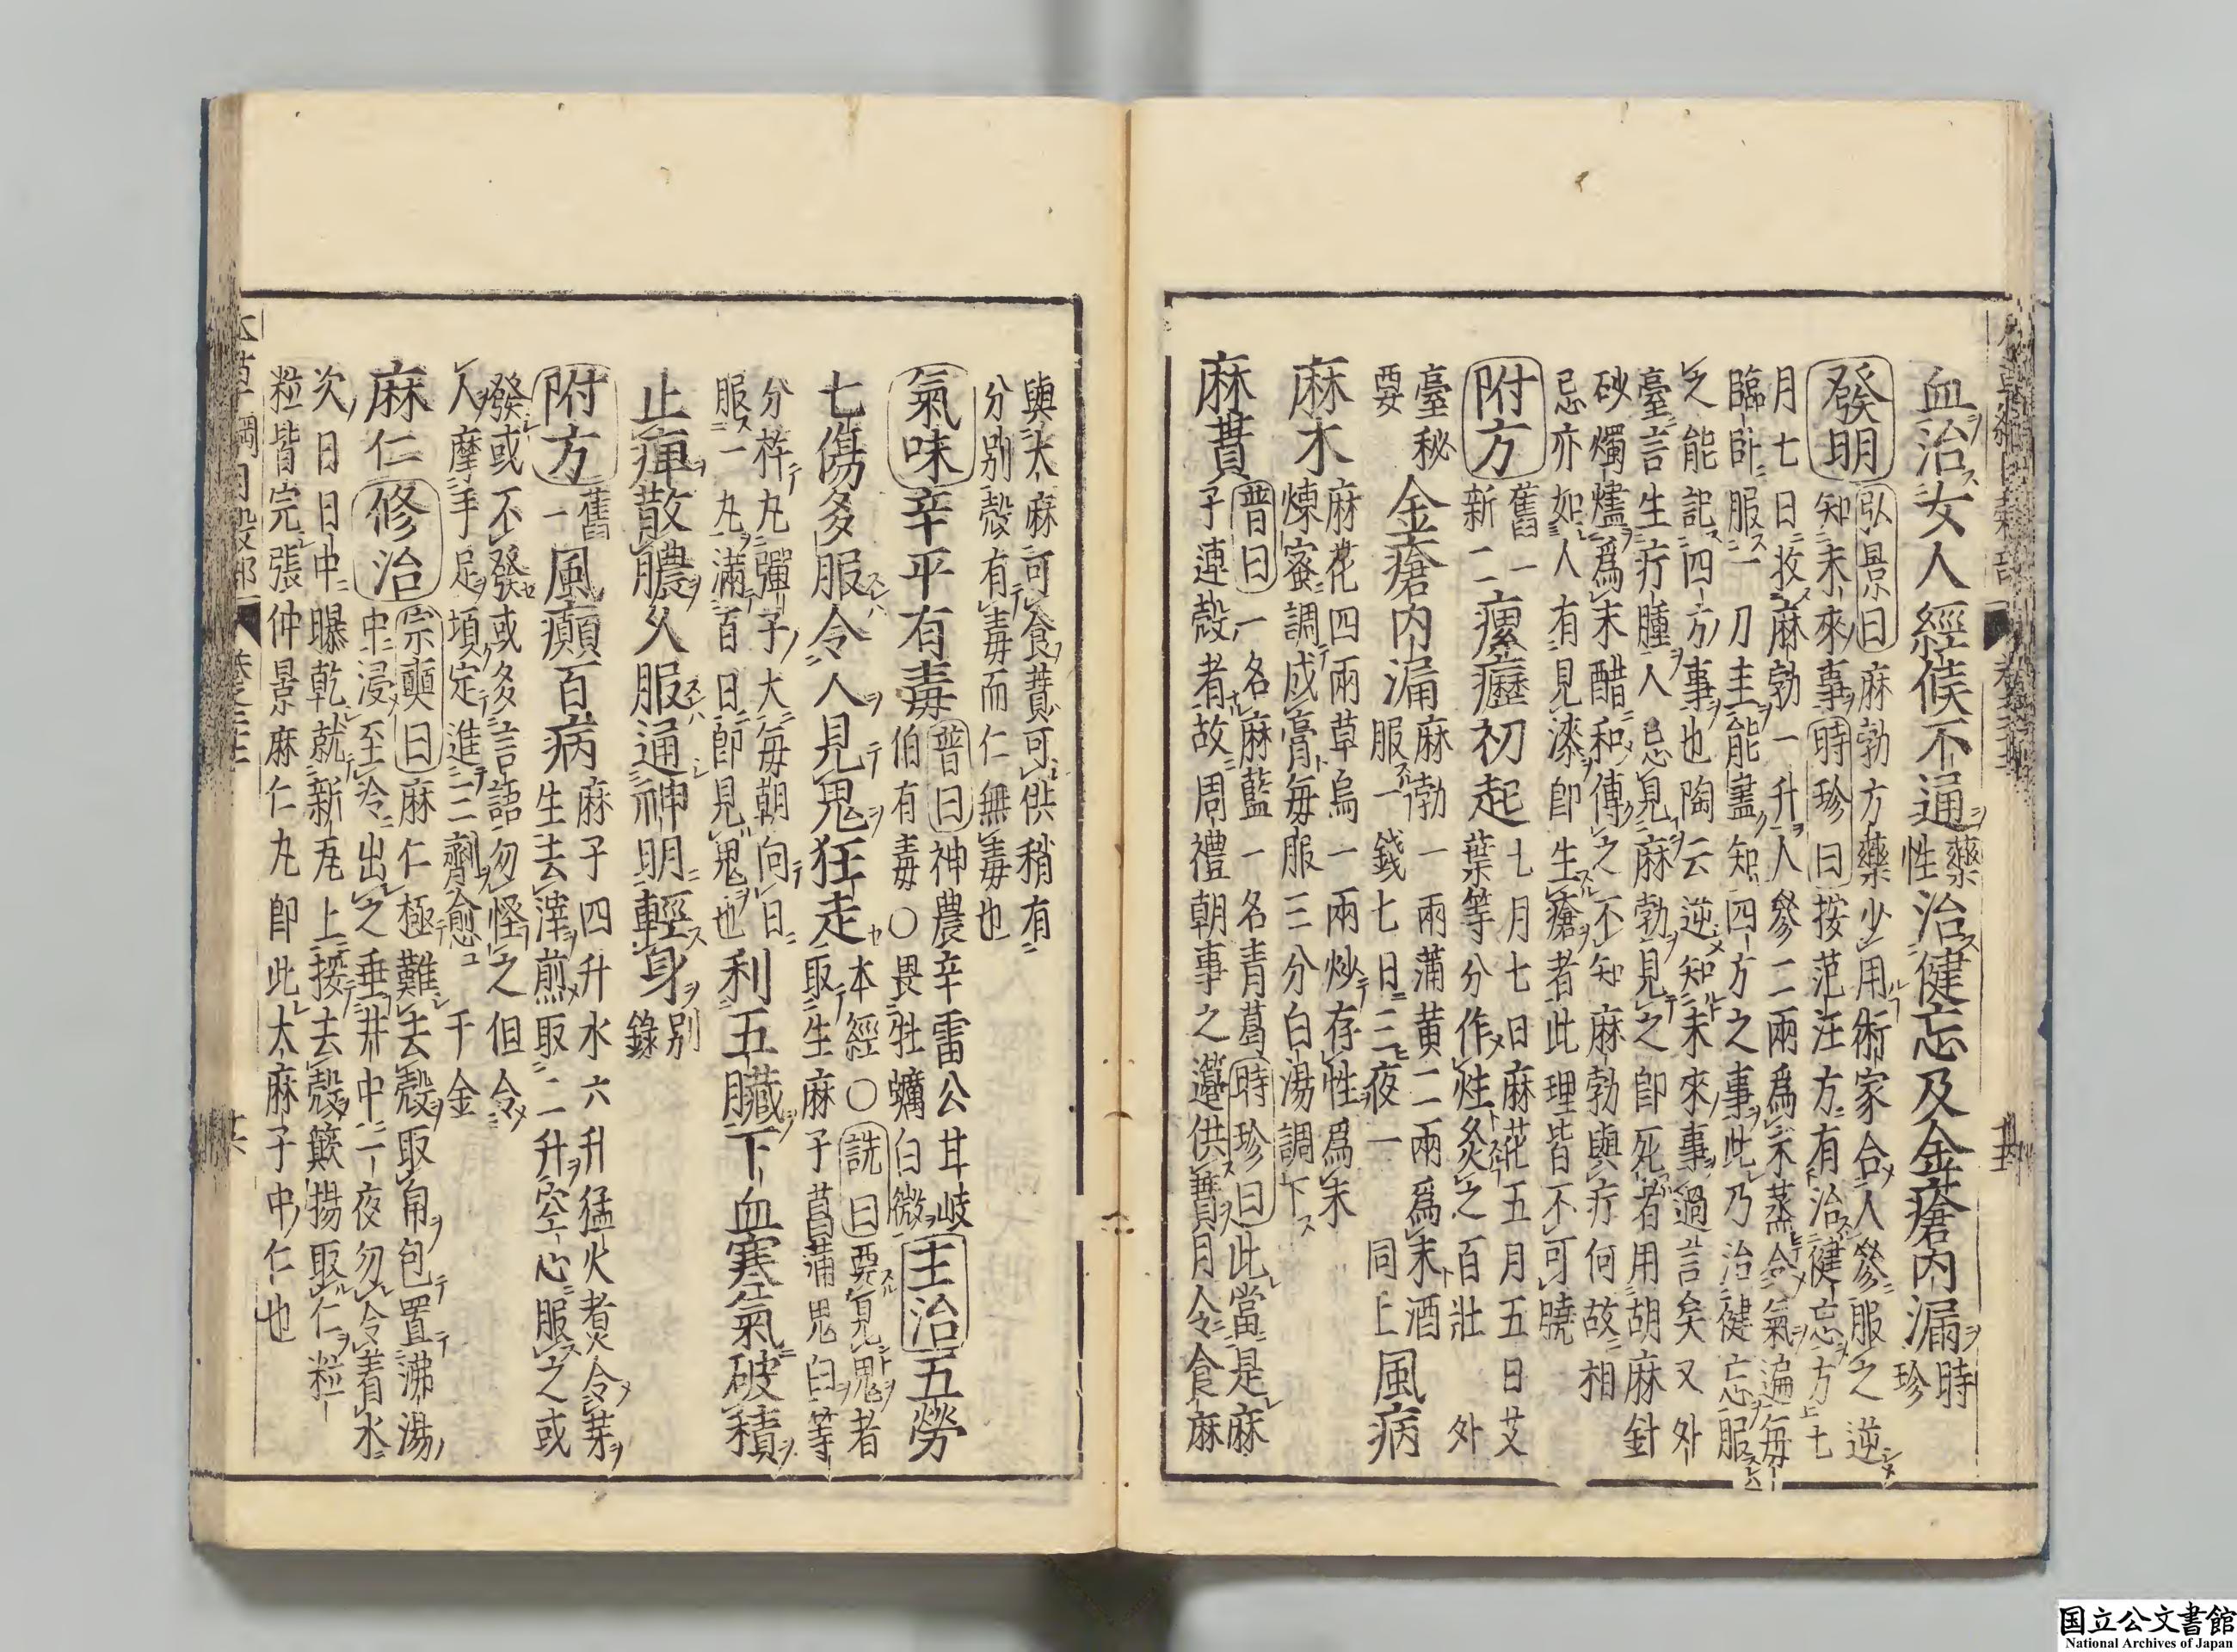 血治女人經候不通藥性治健忘及金瘡內漏時珍
發明弘景曰麻勃方藥少用術家合人參服之逆
知未來事時珍曰按范汪方有治健忘方七
月七日收麻勃一升人參二兩爲末蒸令氣遍每
臨卧服一刀圭能盡知四方之事此乃治健忘服
之能記四方事也陶云逆知未來事過言矣又外
臺言生疔腫人忌見麻勃見之卽死者用胡麻針
砂燭燼爲末醋和傅之不知麻勃與疔何故相
忌亦如人有見漆卽生瘡者此理皆不可曉
附方舊一新二瘰癧初起七月七日麻花五月五日艾葉等分作炷灸之百壯外
臺秘要金瘡內漏麻勃一兩蒲黃二兩爲末酒服一錢七日三夜一同上風病
麻木麻花四兩草烏一兩炒存性爲末煉蜜調成膏每服三分白湯調下
麻蕡普曰一名麻藍一名青葛時珍曰此當是麻子連殼者故周禮朝事之籩供蕡月令食麻
與大麻可食蕡可供稍有
分別殼有毒而仁無毒也
氣味辛平有毒普曰神農辛雷公甘岐伯有毒○畏牡蠣白微主治五勞
七傷多服令人見鬼狂走本經○詵曰要見鬼者取生麻子菖蒲鬼臼等
分杵丸彈子大每朝向日服一丸滿百日卽見鬼也利五臟下血寒氣破積
止痺散膿久服通神明輕身別錄
附方舊一風癲百病麻子四升水六升猛火煮令芽生去滓煎取二升空心服之或
發或不發或多言語勿怪之但令
人摩手足頃定進三劑愈千金
麻仁修治宗奭曰麻仁極難去殼取帛包置沸湯中浸至冷出之垂井中一夜勿令着水
次日日中曝乾就新瓦上挼去殼簸揚取仁粒
粒皆完張仲景麻仁丸卽此大麻子中仁也
国立公文書館
National Archives of Japan